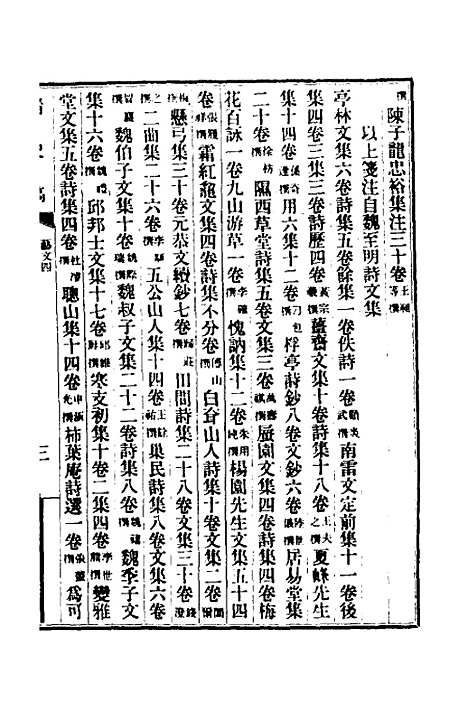 撰陳子龍忠裕集注三十卷王昶等撰
以上箋注自魏至明詩文集
亭林文集六卷詩集五卷餘集一卷佚詩一卷顧炎武撰南雷文定前集十一卷後
集四卷三集三卷詩歷四卷黃宗羲撰薑齋文集十卷詩集十八卷王夫之撰夏峰先生
集十四卷孫奇逢撰用六集十二卷刁包撰桴亭詩鈔八卷文鈔六卷陸世儀撰居易堂集
二十卷徐枋撰隰西草堂詩集五卷文集三卷萬壽祺撰蜃園文集四卷詩集四卷梅
花百詠一卷九山游草一卷李確撰愧訥集十二卷朱用純撰楊園先生文集五十四
卷張履祥撰霜紅龕文集四卷詩集不分卷傅山撰白耷山人詩集十卷文集二卷閻爾
梅撰懸弓集三十卷元恭文續鈔七卷歸莊撰田間詩集二十八卷文集三十卷錢澄
之撰二曲集二十六卷李顒撰五公山人集十四卷王餘祐撰巢民詩集八卷文集六卷
冒襄撰魏伯子文集十卷魏際瑞撰魏叔子文集二十二卷詩集八卷魏禧撰魏季子文
集十六卷魏禮撰邱邦士文集十七卷邱維屏撰寒支初集十卷二集四卷李世熊撰變雅
堂文集五卷詩集四卷杜濬撰聰山集十四卷申涵光撰柿葉庵詩選一卷張蓋撰為可
藝文四
三